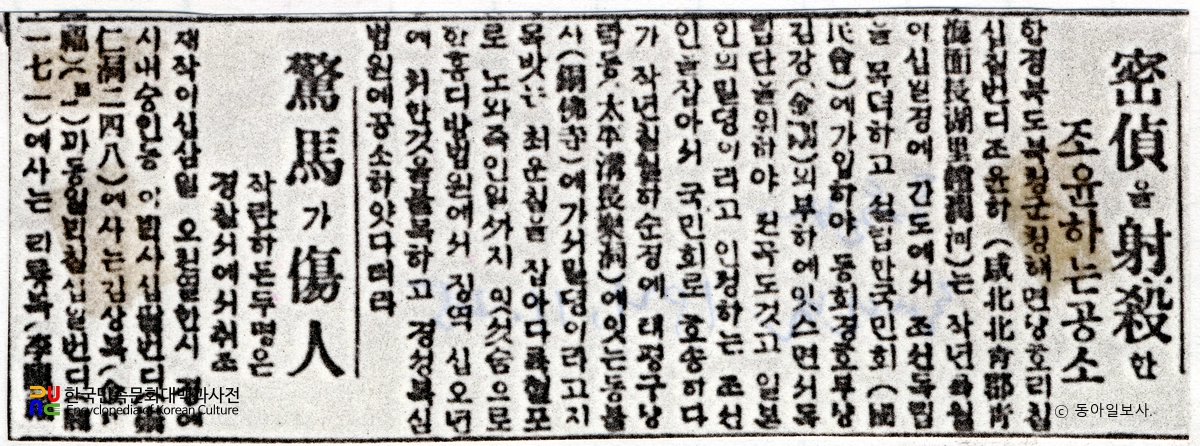 密偵을射殺한
조윤하는공소
함경북도북청군청해면당호리칠
십칠번디조윤하 (咸北北靑郡靑
海面長湖里 河)는 작년 월
이십일경에 간도에서 조선독립
을 목뎍하고 설립한국민회 (國
民會)에가입하야 동회경호부당
김강(金 )의부하에잇스면서독
립단을위하야 원국도것고 일본
인의밀뎡이라고 인정하는 조선
인을잡아서 국민회로 호송하다
가 작년칠월하순경에 태평구당
락동(太平溝長樂洞)에잇는동불
사(銅佛寺)에가서밀뎡이라고지
목밧는 최운실을 잡아다륙혈포
로 노와죽인일까지 잇섯슴으로
함흥디방법원에서 징역 십오년
에 처한것을불복하고 경성복심
법원에공소하얏다더라
驚馬가傷人
작란하든두명은
경찰서에서취조
재작이십삼일 오뎐열한시
시내숭인동 이백사십팔번디
仁洞二四八)에사는김상복
동일백칠십일번디
一七一)에사는
한국민족문화대백과사전
Encyclopedia of Korean Culture
© 동아일보사.